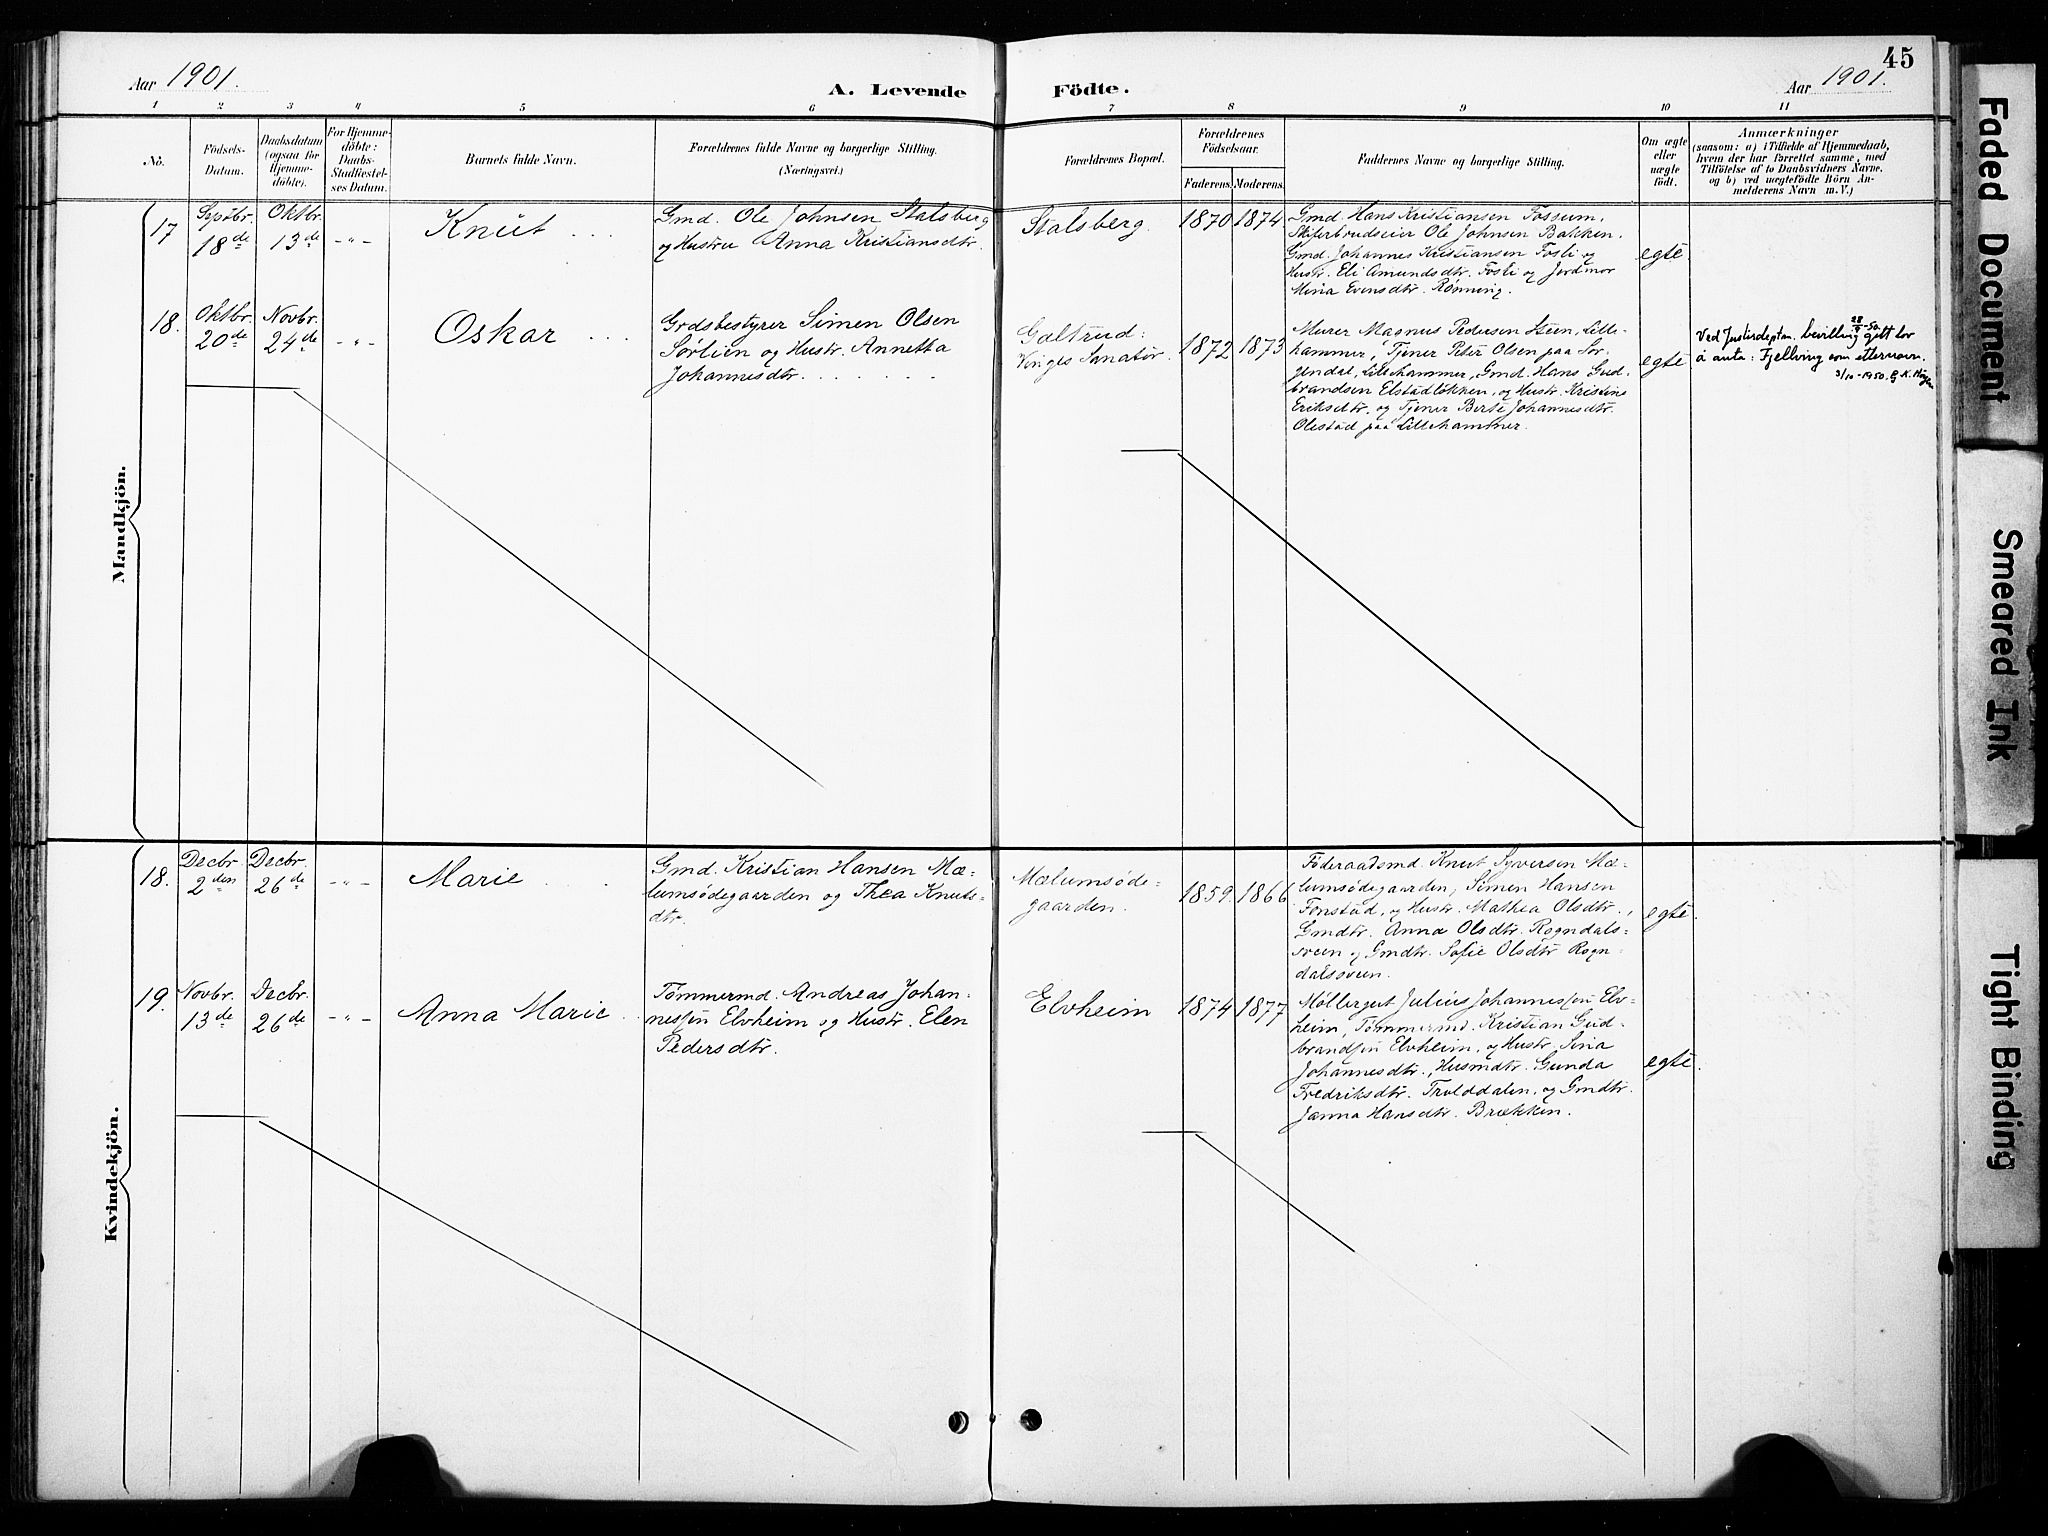 45
Aar 1901.
A. Levende Födte.
Aar 1901.
1 2 3 4 5 6 7 8 9 10 11
No.
Födsels-
Datum.
Daabsdatum
(ogsaa for
Hjemme-
döbte).
For Hjemme-
döbte:
Daabs-
Stadfæstel-
ses Datum.
Barnets fulde Navn.
Forældrenes fulde Navne og borgerlige Stilling.
(Næringsvei.)
Forældrenes Bopæl.
Forældrenes
Födselsaar.
Faderens.
Moderens.
Faddernes Navne og borgerlige Stilling.
Om ægte
eller
uægte
födt.
Anmærkninger
(saasom: a) i Tilfælde af Hjemmedaab,
hvem der har forrettet samme, med
Tilföielse af to Daabsvidners Navne,
og b) ved uægtefödte Börn An-
melderens Navn m. V.)
Mandkjön.
17
Septbr.
18de
Oktbr.
13de
-"-
Knut
Gmd. Ole Johnsen Stalsberg
og Hustru Anna Kristiansdtr.
Stalsberg.
1870
1874
Gmd. Hans Kristiansen Fossum,
Skiferbrudseier Ole Johnsen Bakken.
Gmd. Johannes Kristiansen Fosli og
Hustr. Eli Amundsdtr. Fosli og Jordmor
Mina Evensdtr. Rønning.
egte
18.
Oktbr.
20de
Novbr.
24de
-"-
Oskar
Grdsbestyrer Simen Olsen
Sørlien og Hustr. Annetta
Johannesdtr.
Galtrud:
Vinges Sanator.
1872
1873
Murer Magnus Pedersen Steen, Lille-
hammer, Tjener Peter Olsen paa Sor-
gendal, Lillehammer, Gmd. Hans Gud-
brandsen Elstadløkken, og Hustr. Kristine
Eriksdtr. og Tjener Berte Johannesdtr.
Olestad paa Lillehammer.
egte
Ved Justisdeptm. bevilling 28/9-50 gitt lov
å anta: Fjellving som etternavn.
3/10-1950.
Kvindekjön.
18.
Decbr.
2den
Decbr.
26de
-"-
Marie
Gmd. Kristian Hansen Mæ-
lumsödegaarden og Thea Knuts-
dtr.
Mælumsöde-
gaarden.
1859.
1866
Föderaadsmd. Knut Syversen Mæ-
lumsödegaarden, Simen Hansen
Fonstad, og Hustr. Mathea Olsdtr.,
Gmdtr. Anna Olsdtr. Rogndals-
sveen og Gmdtr. Sofie Olsdtr Rogn-
dalssveen.
egte.
19.
Novbr.
13de
Decbr.
26de
-"-
Anna Marie
Tømmermd. Andreas Johan-
nessen Elvheim og Hustr. Elen
Pedersdtr.
Elvheim
1874
1877
Møllergut Julius Johannessen Elv-
heim, Tømmermd. Kristian Gud-
brandsen Elvheim, og Hustr. Sina
Johannesdtr., Husmdtr. Gunda
Fredriksdtr. Trolddalen, og Gmdtr.
Janna Hansdtr. Brækken.
egte.
Faded Document
Smeared Ink
Tight Binding